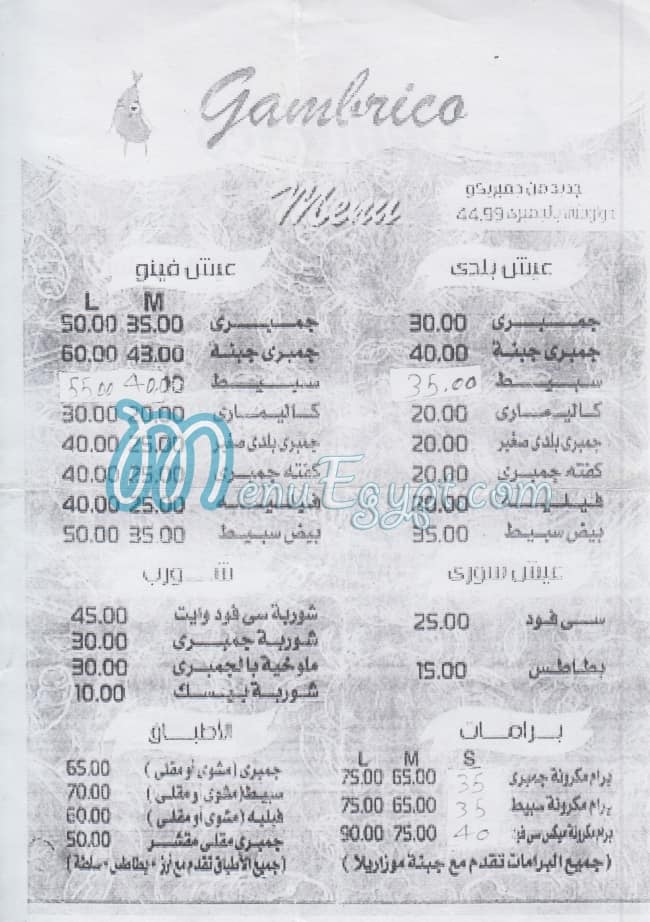 Gambrico
Menu
جديد من جمبريكو
44.99
عيش بلدى
جمبرى 30.00
جمبرى جبنة 40.00
سبيط 35.00
كاليمارى 20.00
جمبرى بلدى صغير 20.00
كفته جمبرى 20.00
فيليه 20.00
بيض سبيط 35.00
عيش فينو
M L
جمبرى 35.00 50.00
جمبرى جبنة 43.00 60.00
سبيط 40.00 55.00
كاليمارى 20.00 30.00
جمبرى بلدى صغير 25.00 40.00
كفته جمبرى 25.00 40.00
فيليه 25.00 40.00
بيض سبيط 35.00 50.00
MenuEgypt.com
عيش سورى
سى فود 25.00
بطاطس 15.00
شورب
شوربة سى فود وايت 45.00
شوربة جمبرى 30.00
ملوخية بالجمبرى 30.00
شوربة بيسك 10.00
برامات
S M L
برام مكرونة جمبرى 35 65.00 75.00
برام مكرونة سبيط 35 65.00 75.00
برام مكرونة ميكس سى فود 40 75.00 90.00
(جميع البرامات تقدم مع جبنة موزاريلا)
الأطباق
جمبرى (مشوى أو مقلى) 65.00
سبيط (مشوى و مقلى) 70.00
فيليه (مشوى أو مقلى) 60.00
جمبرى مقلى مقشر 50.00
(جميع الأطباق تقدم مع أرز * بطاطس * سلطة)